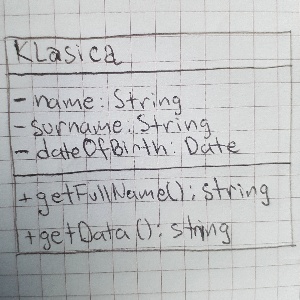 Klasica
- name: String
- surname: String
- dateOfBirth: Date
+ getFullName(): string
+ getData(): string